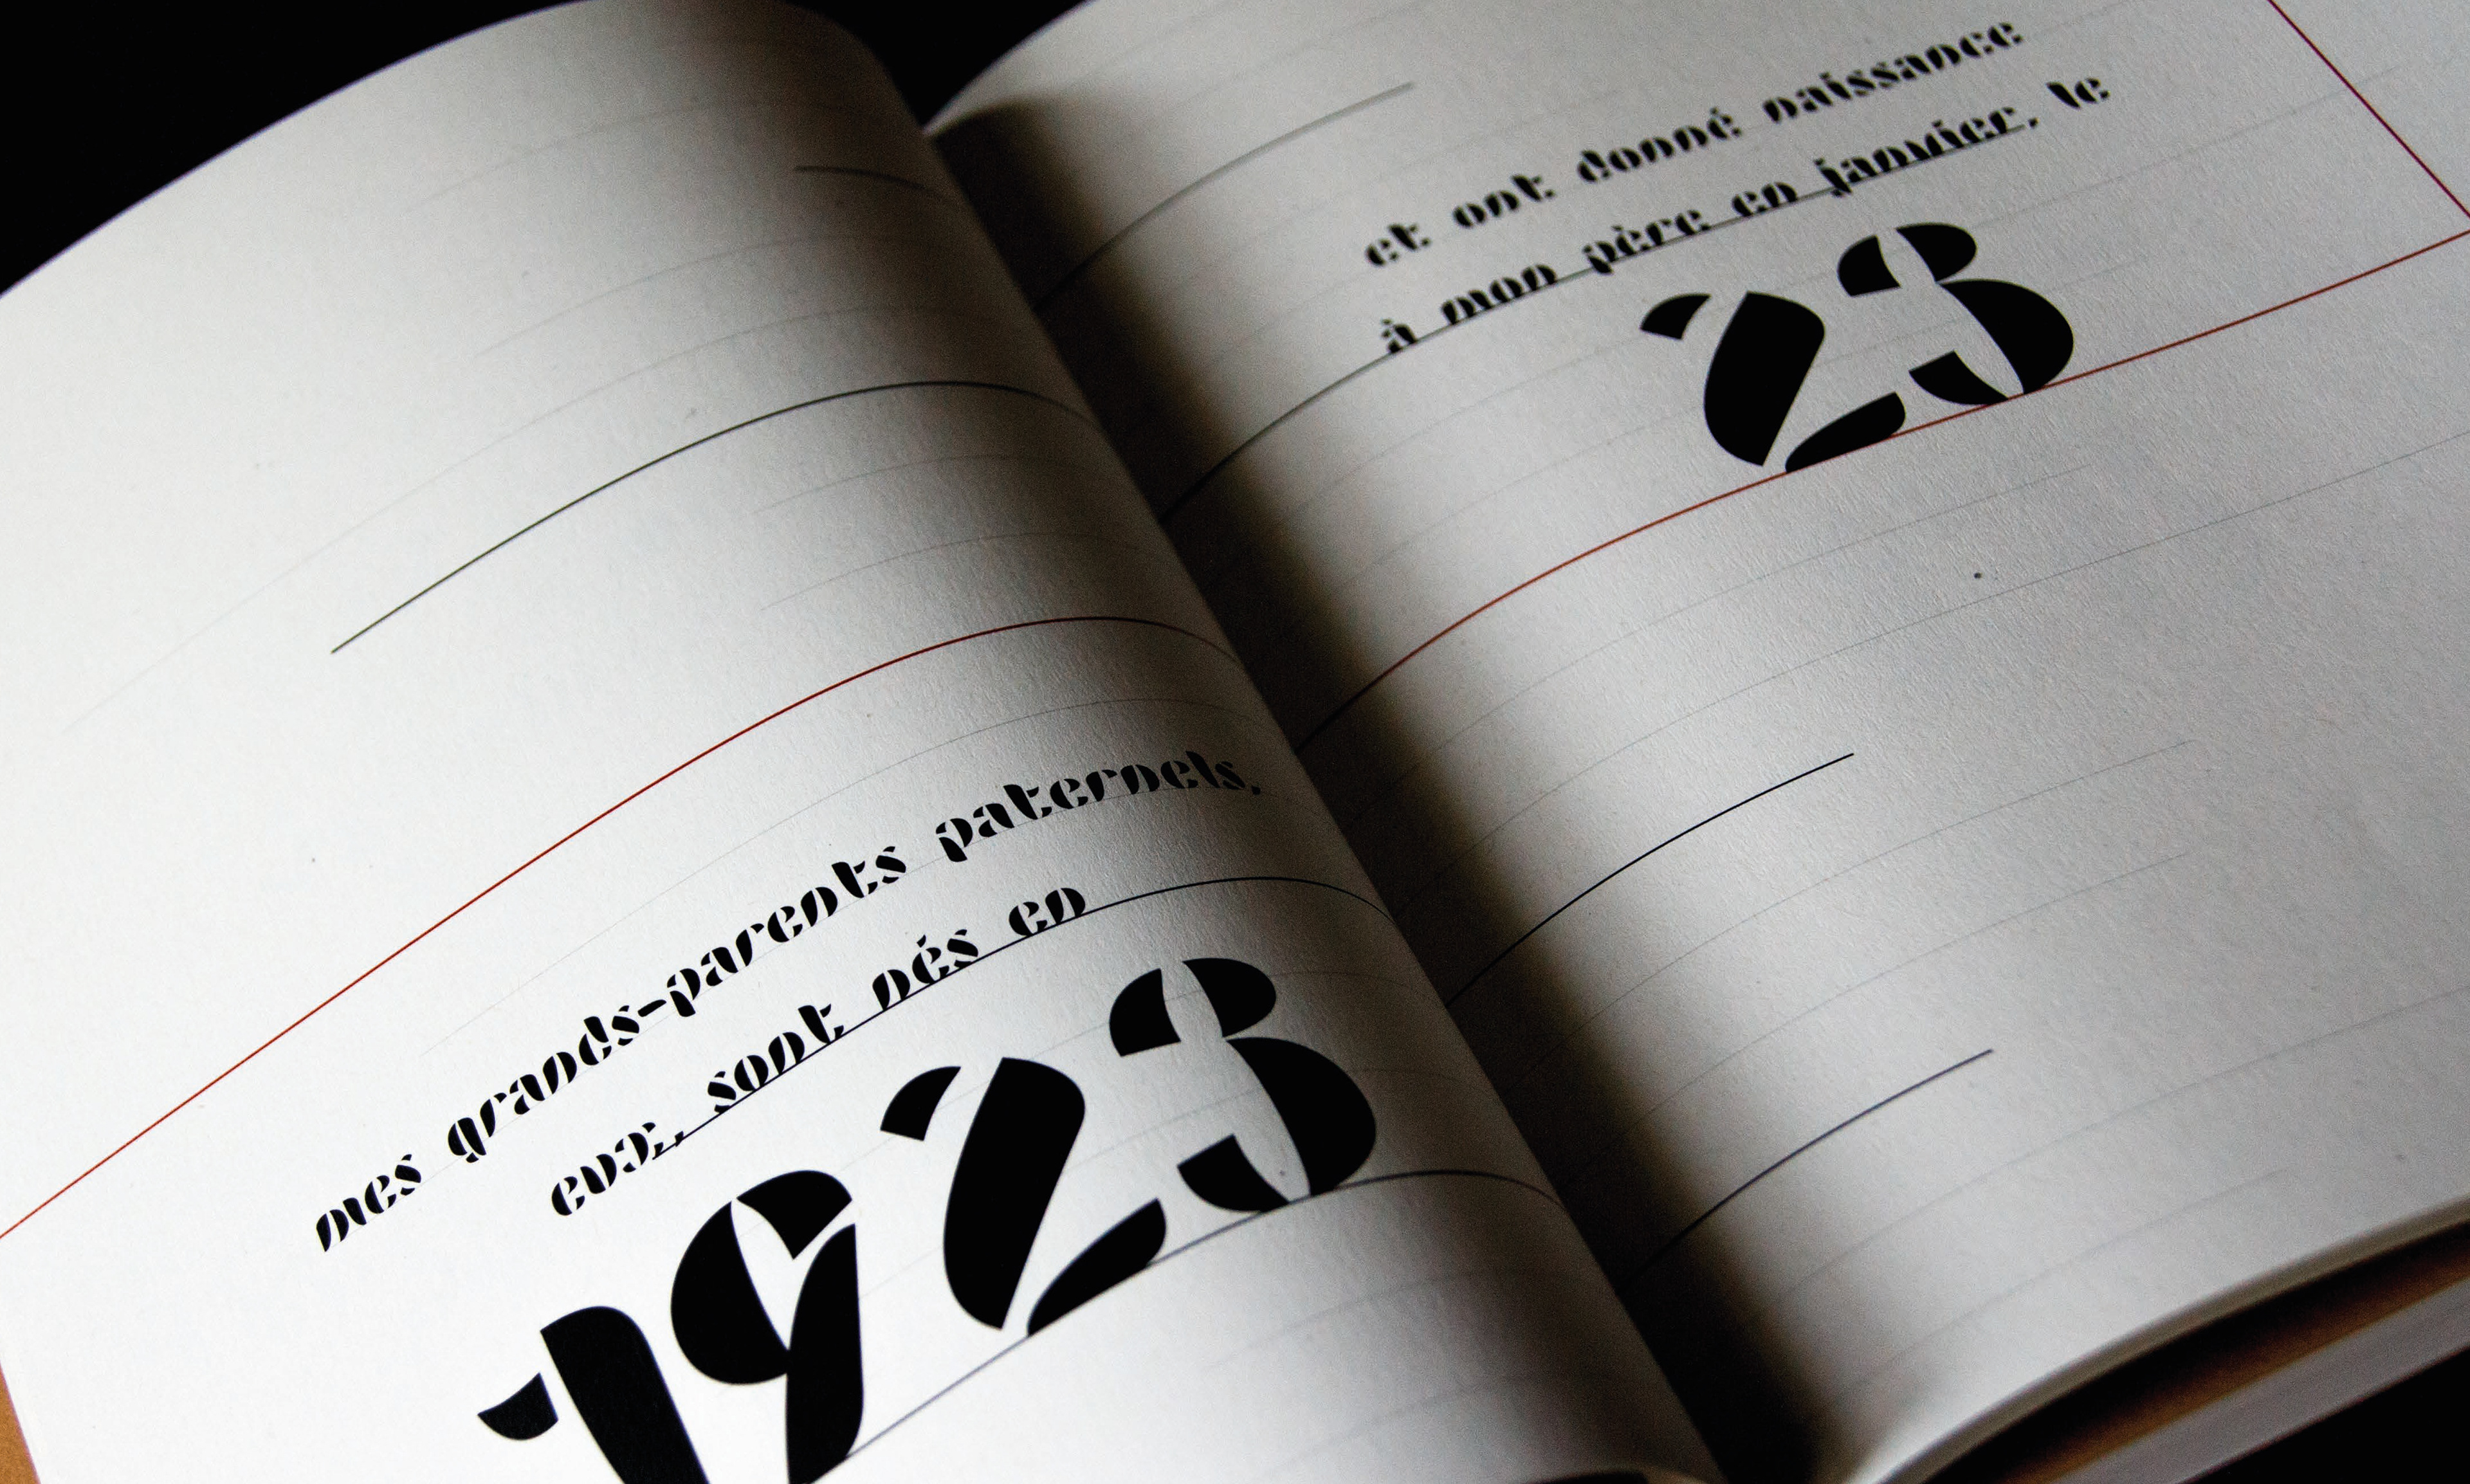 mes grands-parents paternels,
eux, sont nés en
1923
et ont donné naissance
à mon père en janvier, le
23